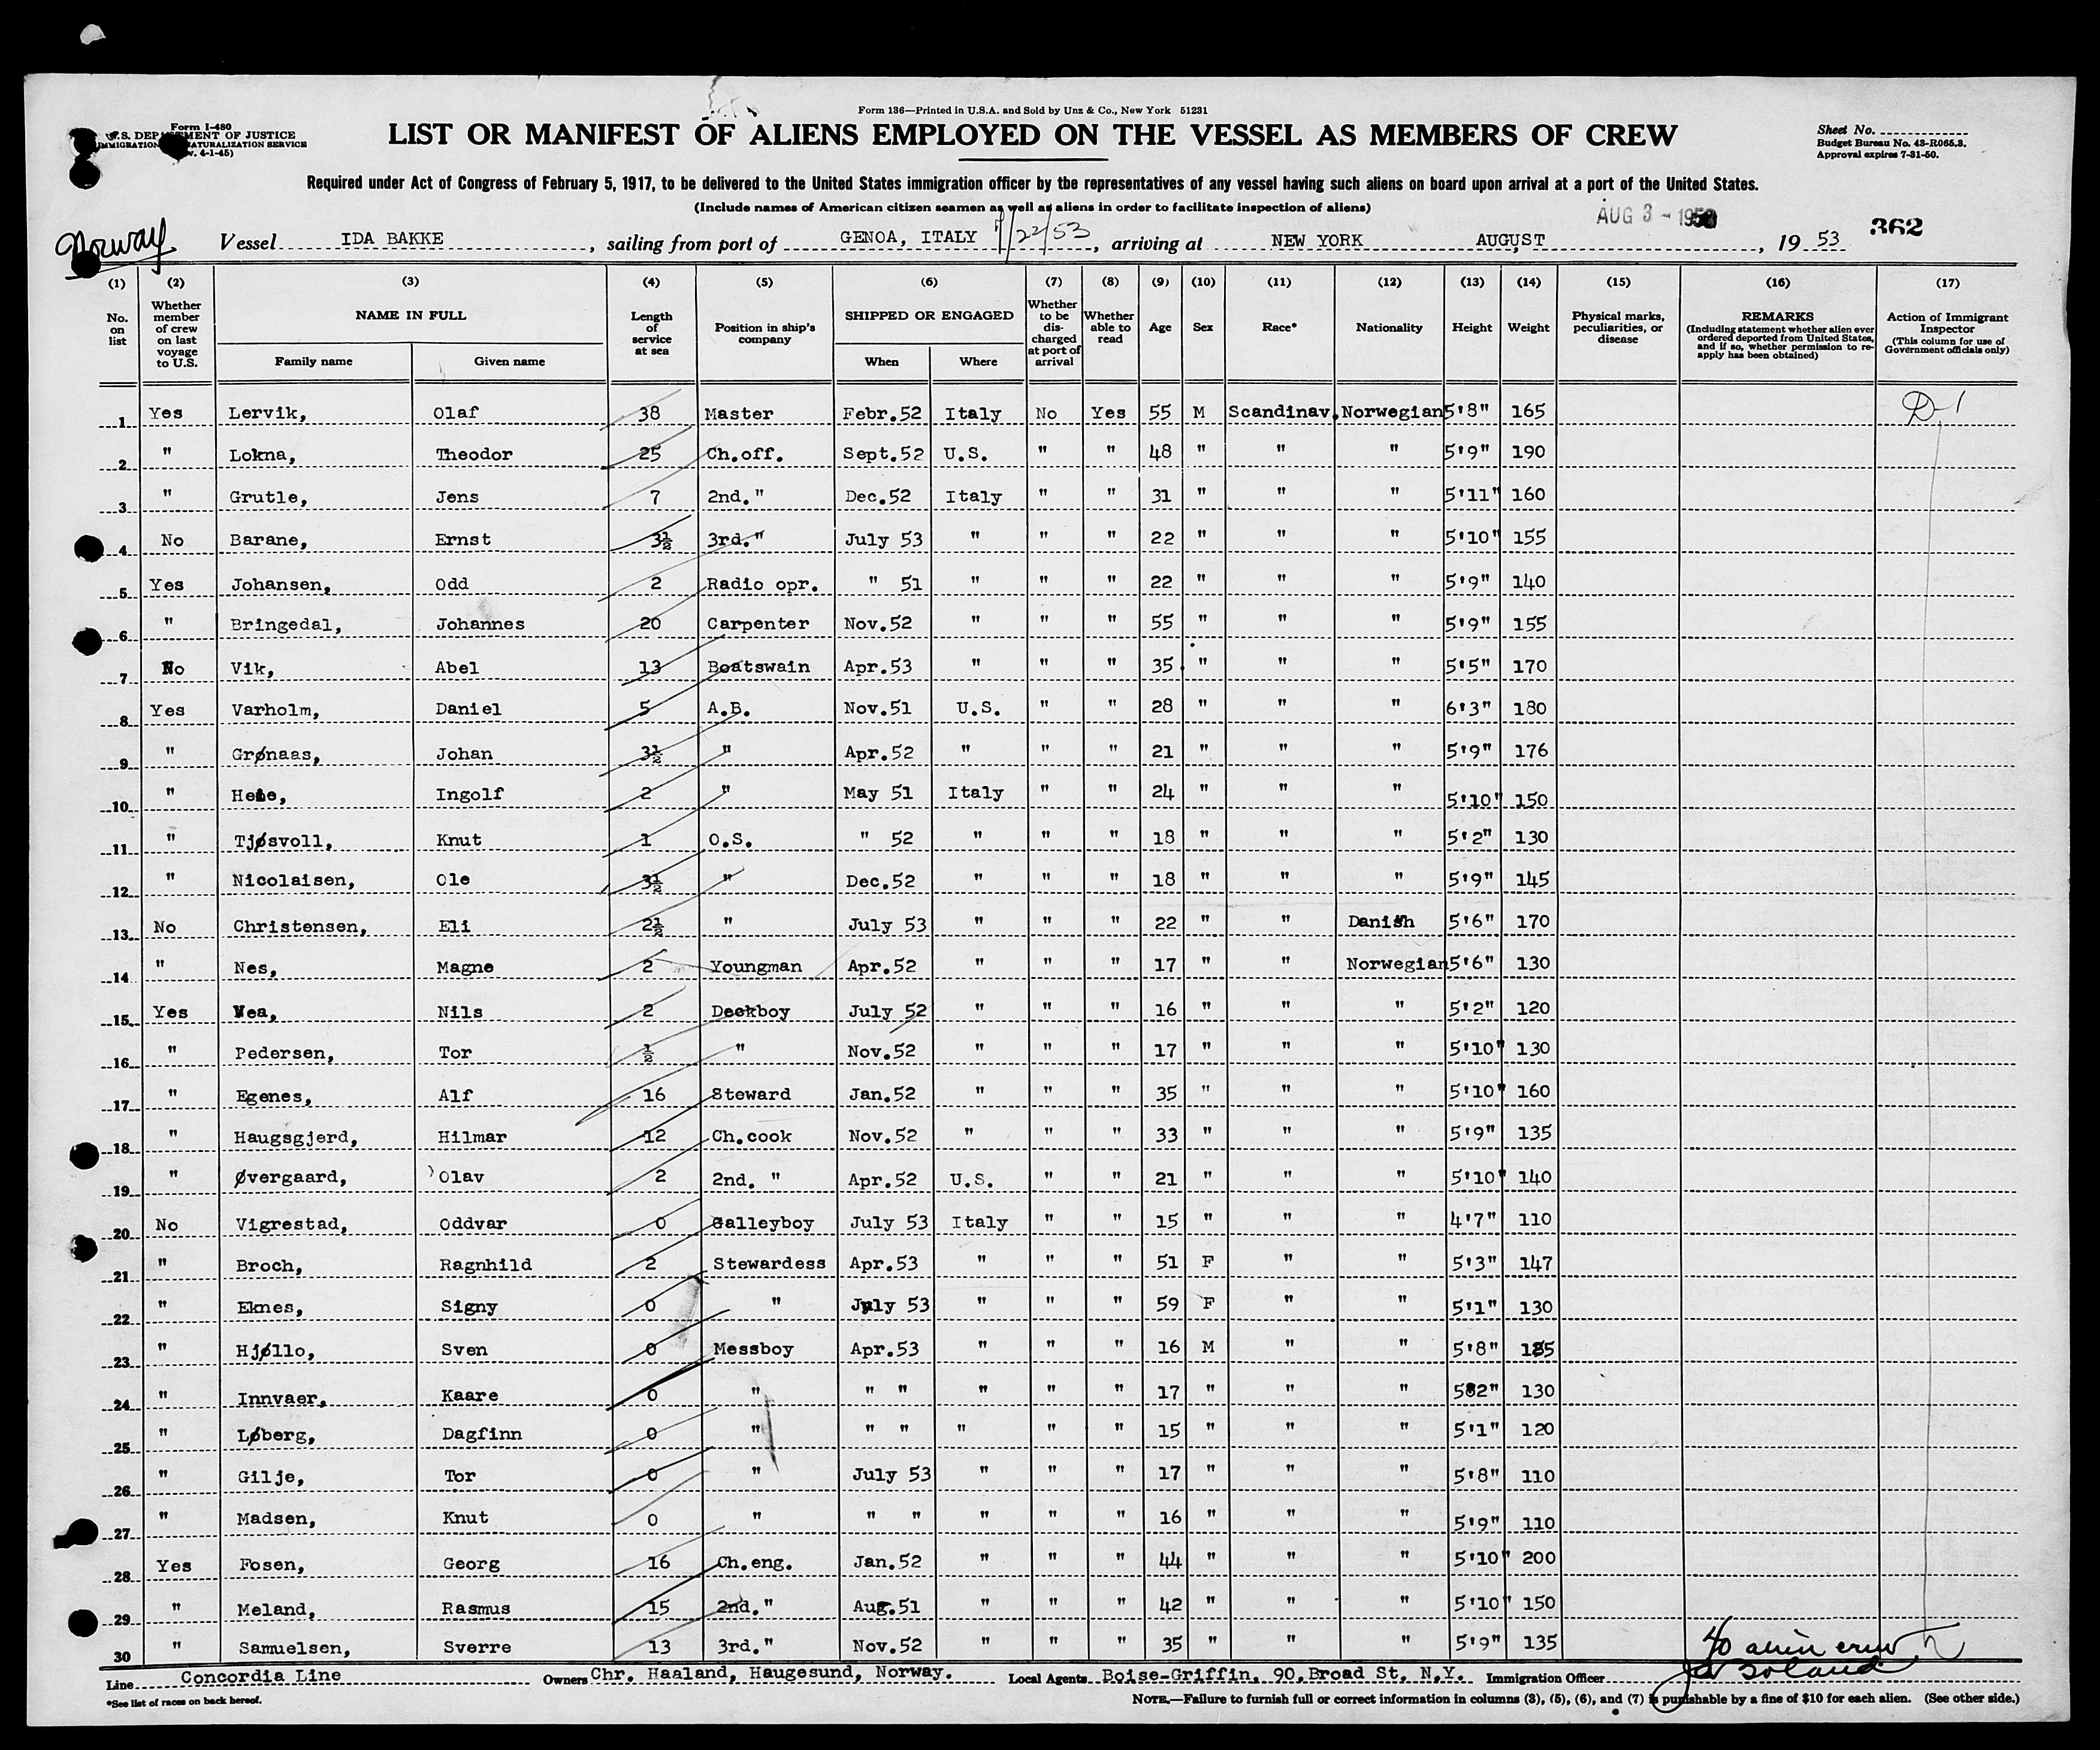 Form 136—Printed in U.S.A. and Sold by Unz & Co., New York 51231
Form I-480
U.S. DEPARTMENT OF JUSTICE
IMMIGRATION NATURALIZATION SERVICE
4-1-45)
LIST OR MANIFEST OF ALIENS EMPLOYED ON THE VESSEL AS MEMBERS OF CREW
Sheet No.
Budget Bureau No. 43-R065.3.
Approval expires 7-31-50.
Required under Act of Congress of February 5, 1917, to be delivered to the United States immigration officer by the representatives of any vessel having such aliens on board upon arrival at a port of the United States.
(Include names of American citizen seamen as well as aliens in order to facilitate inspection of aliens)
AUG 3 - 195
362
Norway
Vessel IDA BAKKE, sailing from port of GENOA, ITALY 7/22/53, arriving at NEW YORK AUGUST, 19 53
(1) (2) (3) (4) (5) (6) (7) (8) (9) (10) (11) (12) (13) (14) (15) (16) (17)
No. on list
Whether member of crew on last voyage to U.S.
NAME IN FULL
Family name Given name
Length of service at sea
Position in ship's company
SHIPPED OR ENGAGED
When Where
Whether to be discharged at port of arrival
Whether able to read
Age
Sex
Race*
Nationality
Height
Weight
Physical marks, peculiarities, or disease
REMARKS
(Including statement whether alien ever ordered deported from United States, and if so, whether permission to re-apply has been obtained)
Action of Immigrant Inspector
(This column for use of Government officials only)
1 Yes Lervik, Olaf 38 Master Febr.52 Italy No Yes 55 M Scandinav. Norwegian 5'8" 165 D-1
2 " Lokna, Theodor 25 Ch.off. Sept.52 U.S. " " 48 " " " 5'9" 190
3 " Grutle, Jens 7 2nd." Dec.52 Italy " " 31 " " " 5'11" 160
4 No Barane, Ernst 3½ 3rd." July 53 " " " 22 " " " 5'10" 155
5 Yes Johansen, Odd 2 Radio opr. " 51 " " " 22 " " " 5'9" 140
6 " Bringedal, Johannes 20 Carpenter Nov.52 " " " 55 " " " 5'9" 155
7 No Vik, Abel 13 Boatswain Apr.53 " " " 35 " " " 5'5" 170
8 Yes Varholm, Daniel 5 A.B. Nov.51 U.S. " " 28 " " " 6'3" 180
9 " Grønaas, Johan 3½ " Apr.52 " " " 21 " " " 5'9" 176
10 " Ingolf 2 " May 51 Italy " " 24 " " " 5'10" 150
11 " Tjøsvoll, Knut 1 O.S. " 52 " " " 18 " " " 5'2" 130
12 " Nicolaisen, Ole 3½ " Dec.52 " " " 18 " " " 5'9" 145
13 No Christensen, Eli 2½ " July 53 " " " 22 " " Danish 5'6" 170
14 " Nes, Magne 2 Youngman Apr.52 " " " 17 " " Norwegian 5'6" 130
15 Yes Vea, Nils 2 Deckboy July 52 " " " 16 " " " 5'2" 120
16 " Pedersen, Tor ½ " Nov.52 " " " 17 " " " 5'10" 130
17 " Egenes, Alf 16 Steward Jan.52 " " " 35 " " " 5'10" 160
18 " Haugsgjerd, Hilmar 12 Ch.cook Nov.52 " " " 33 " " " 5'9" 135
19 " Øvergaard, Olav 2 2nd. " Apr.52 U.S. " " 21 " " " 5'10" 140
20 No Vigrestad, Oddvar 0 Galleyboy July 53 Italy " " 15 " " " 4'7" 110
21 " Broch, Ragnhild 2 Stewardess Apr.53 " " " 51 F " " 5'3" 147
22 " Eknes, Signy 0 " July 53 " " " 59 F " " 5'1" 130
23 " Hjøllo, Sven 0 Messboy Apr.53 " " " 16 M " " 5'8"
24 " Innvaer, Kaare 0 " " " " " " 17 " " " 582" 130
25 " Løberg, Dagfinn 0 " " " " " " 15 " " " 5'1" 120
26 " Gilje, Tor 0 " July 53 " " " 17 " " " 5'8" 110
27 " Madsen, Knut 0 " " " " " " 16 " " " 5'9" 110
28 Yes Fosen, Georg 16 Ch.eng. Jan.52 " " " 44 " " " 5'10" 200
29 " Meland, Rasmus 15 2nd." Aug.51 " " " 42 " " " 5'10" 150
30 " Samuelsen, Sverre 13 3rd." Nov.52 " " " 35 " " " 5'9" 135
40 alien crew
Line Concordia Line Owners Chr. Haaland, Haugesund, Norway. Local Agents Boise-Griffin, 90.Broad St. N.Y. Immigration Officer
*See list of races on back hereof.
NOTE.—Failure to furnish full or correct information in columns (3), (5), (6), and (7) is punishable by a fine of $10 for each alien. (See other side.)